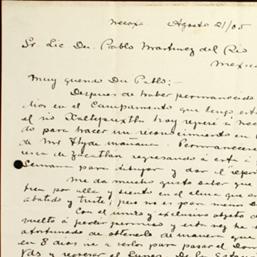 Necaxa Agosto 21/05
Sr Lic Dn. Pablo Martinez del Rio
Mexico
Muy querido Dn Pablo:-
Despues de haber permanecido
dias en el Campamento que tengo
el rio Xaltepuxtla hoy regresé á
do para hacer un reconocimiento en
de Mr Hyde mañana. Permanecere
una de Zacatlan regresando á esta á
Semana para dibujar y dar el
me da mucho gusto saber que
bien por alla y siento en el alma que
abatido y triste, pero no es para menos
Con el unico y exclusivo objeto
vuelto á pedir permiso y esta vez he
afortunado de obtenerlo de manera que
en 8 dias ire a verlo para pasar el
Vds y regresar el Lunes. De la